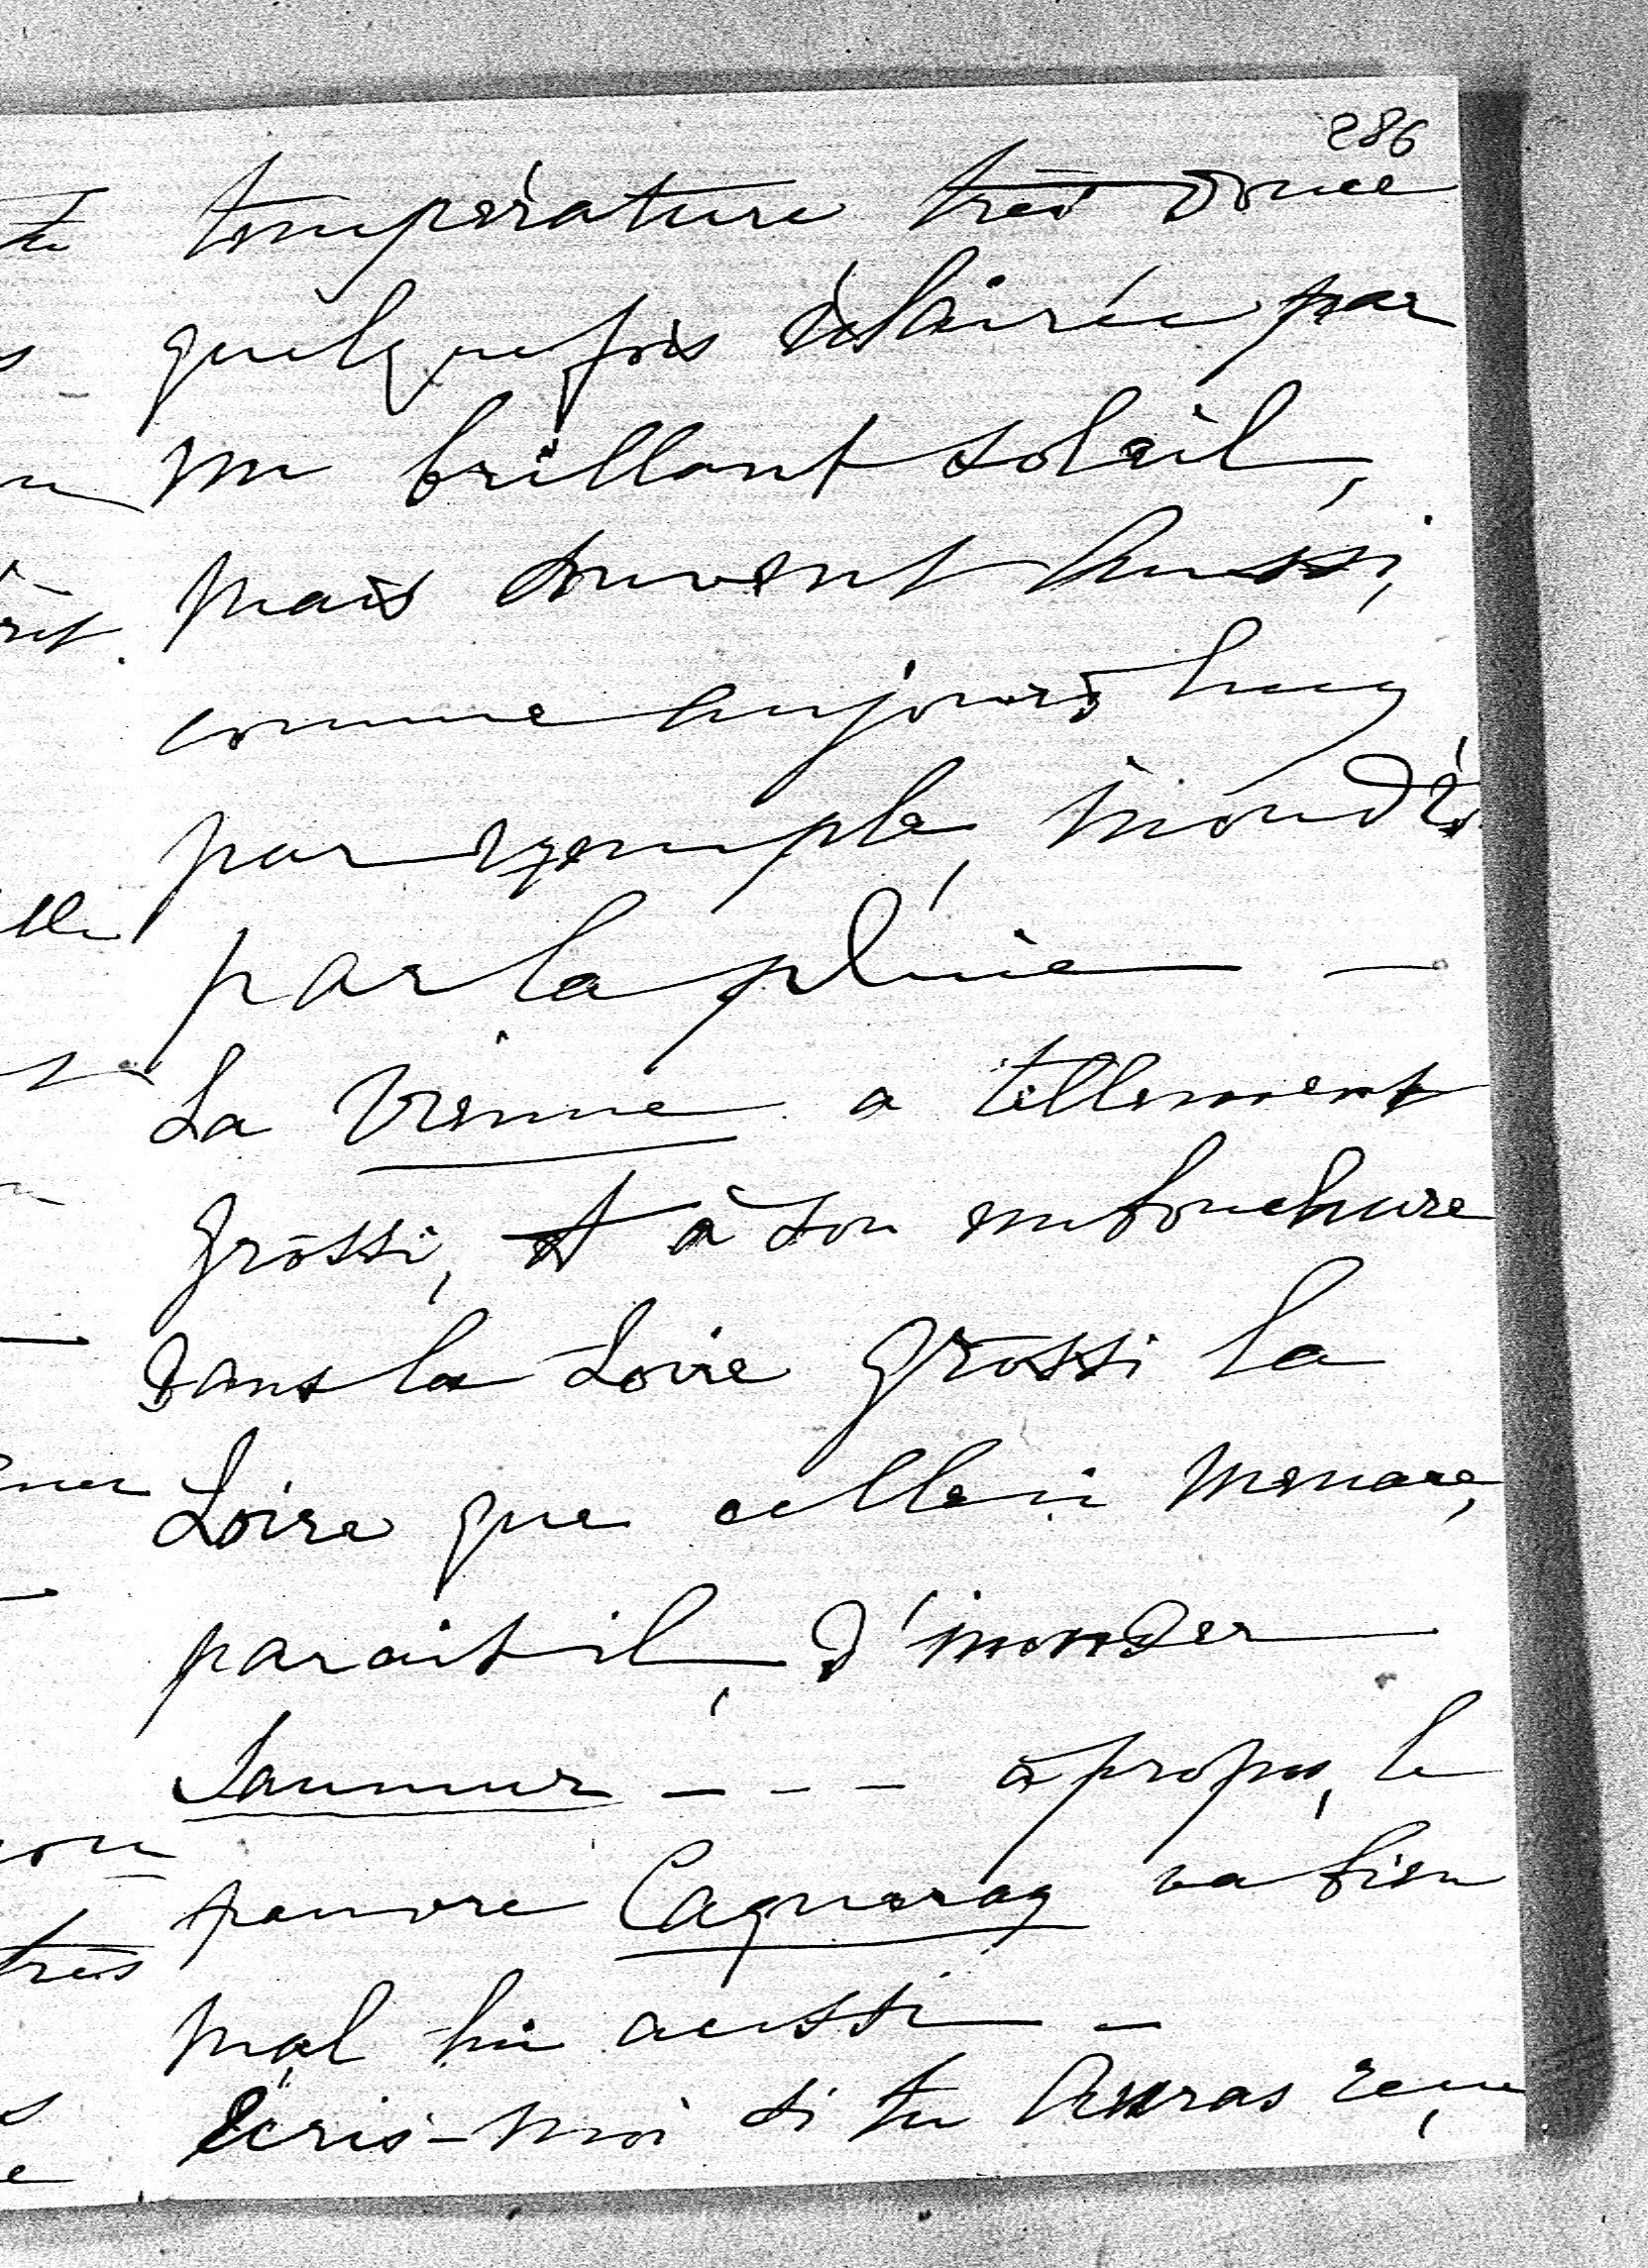 286
température très douce
quelquefois éclairée par
un brillant soleil,
mais souvent aussi,
comme aujourd'huy
par exemple, inondée
par la pluie —
La Vienne a tellement
grossi, et à son embouchure
dans la Loire grossi la
Loire que celle ci menace,
parait-il, d'inonder
Saumur - - - à propos, le
pauvre va bien
mal lui aussi -
Écris-moi si tu auras reçu